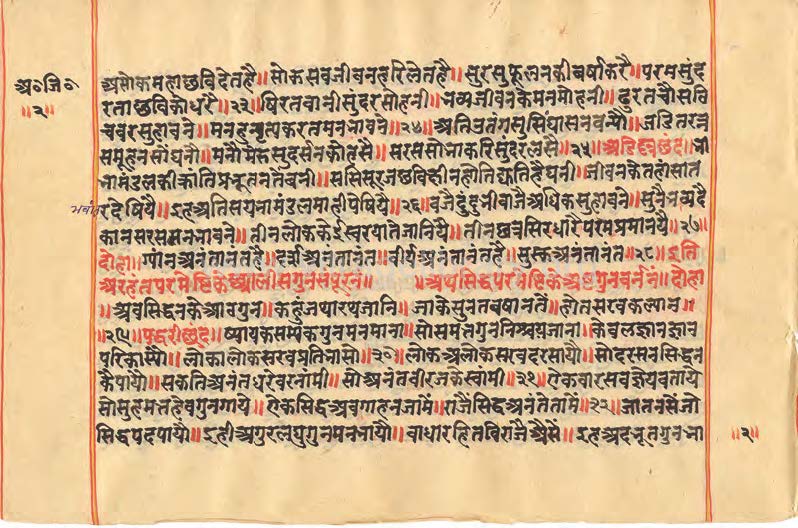 अ०जि०
॥२॥
असोकमहाछविदेतहै॥सोकसबजीवनहरिलेतहै॥सुरसुफूलनकीबर्षाकरै॥परमसुंद
रताछविकोधरै॥२३॥षिरतबानीसुंदरसोहनी॥भव्यजीवनकेमनमोहनी॥ढुरतचौसठि
चवरसुहावने॥मनहुनृत्यकरतमनभावने॥२४॥अतिउतंगसुसिंघासनबन्यौ॥जडितरत्न
समूहनसोंघनौ॥मनौमेरुसुदर्सनकोलसै॥सरससोभाकरिसुंदरलसै॥२५॥अडिल्लछंद॥भा
भामंडलकीकांतिप्रभूतनतैबनी॥ससिसूरजछविहीनहोतिद्युतिहैघनी॥जीवनकेतहांसात
भवांतरदेषियै॥इहअतिसयभामंडलमाहीपेषियै॥२६॥बजैदुंदुभीबाजैअधिकसुहावने॥सुनैभव्यदै
कानसरसमनभावने॥तीनलोककेईस्वरयातैजानियै॥तीनछत्रसिरधारैपरमप्रमानयै॥२७॥
दोहा॥ग्यांनअनंतानंतहै॥दर्सअनंतानंत॥वीर्यअनंतानंतहै॥सुख्खअनंतानंत॥२८॥इति
अरहंतपरमेष्टिकेछ्यालीसगुनसंपूरनं॥ ॥अथसिद्धपरमेष्टिकेअष्टगुनवर्ननं॥दोहा॥
अबसिद्धनकेआठगुन॥कहुंजथारथजानि॥जाकेसुनतबषानतै॥होतसरबकल्यान॥
॥२९॥पद्धरीछंद॥ष्यायकसम्यकगुनमनमाना॥सोसमतगुननिश्चयजाना॥केवलज्ञानज्ञान
परिकास्यो॥लोकालोकसरबप्रतिभासो॥३०॥लोकअलोकसबदरसायौ॥सोदरसनसिद्धन
कैपायौ॥सकतिअनंतधरेवरनांमी॥सोअनंतवीरजकेस्वामी॥३१॥ऐकबारसबज्ञेयबतायै
सोसुहमतहेवगुनगाये॥ऐकसिद्धअवगाहनजामें॥राजैंसिद्धअनंतेतामें॥३२॥जातनसेंजो
सिद्धपदपायौ॥इहीअगुरलघुगुनमनभायौ॥बाधारहितविराजैअैसें॥इहअदभूतगुनभा
॥२॥